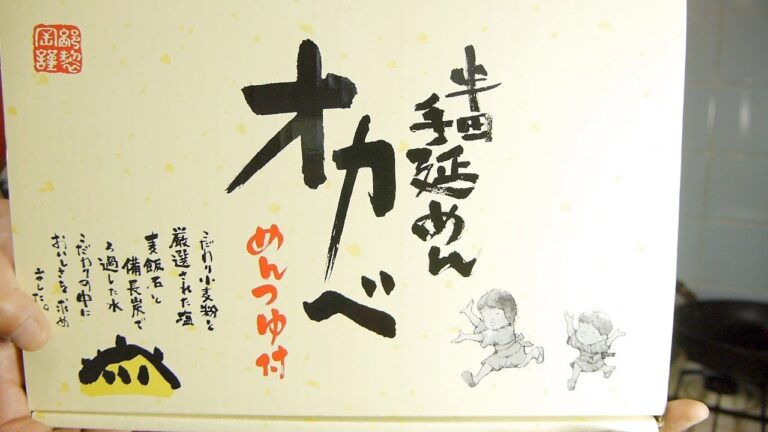 半田
手延めん
オカベ
めんつゆ付
こだわり小麦粉と
厳選された塩
麦飯石と
備長炭で
ろ過した水
こだわりの中に
おいしさを求め
ました。
謹製